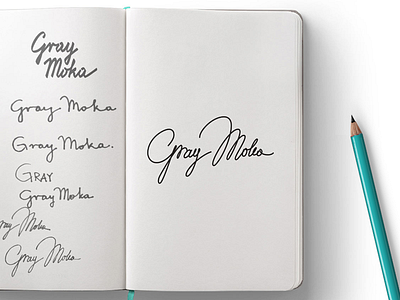 Gray
Moka
Gray Moka
Gray Moka.
GRAY
Gray Moka
ray Moka
Gray Moka
Gray Moka